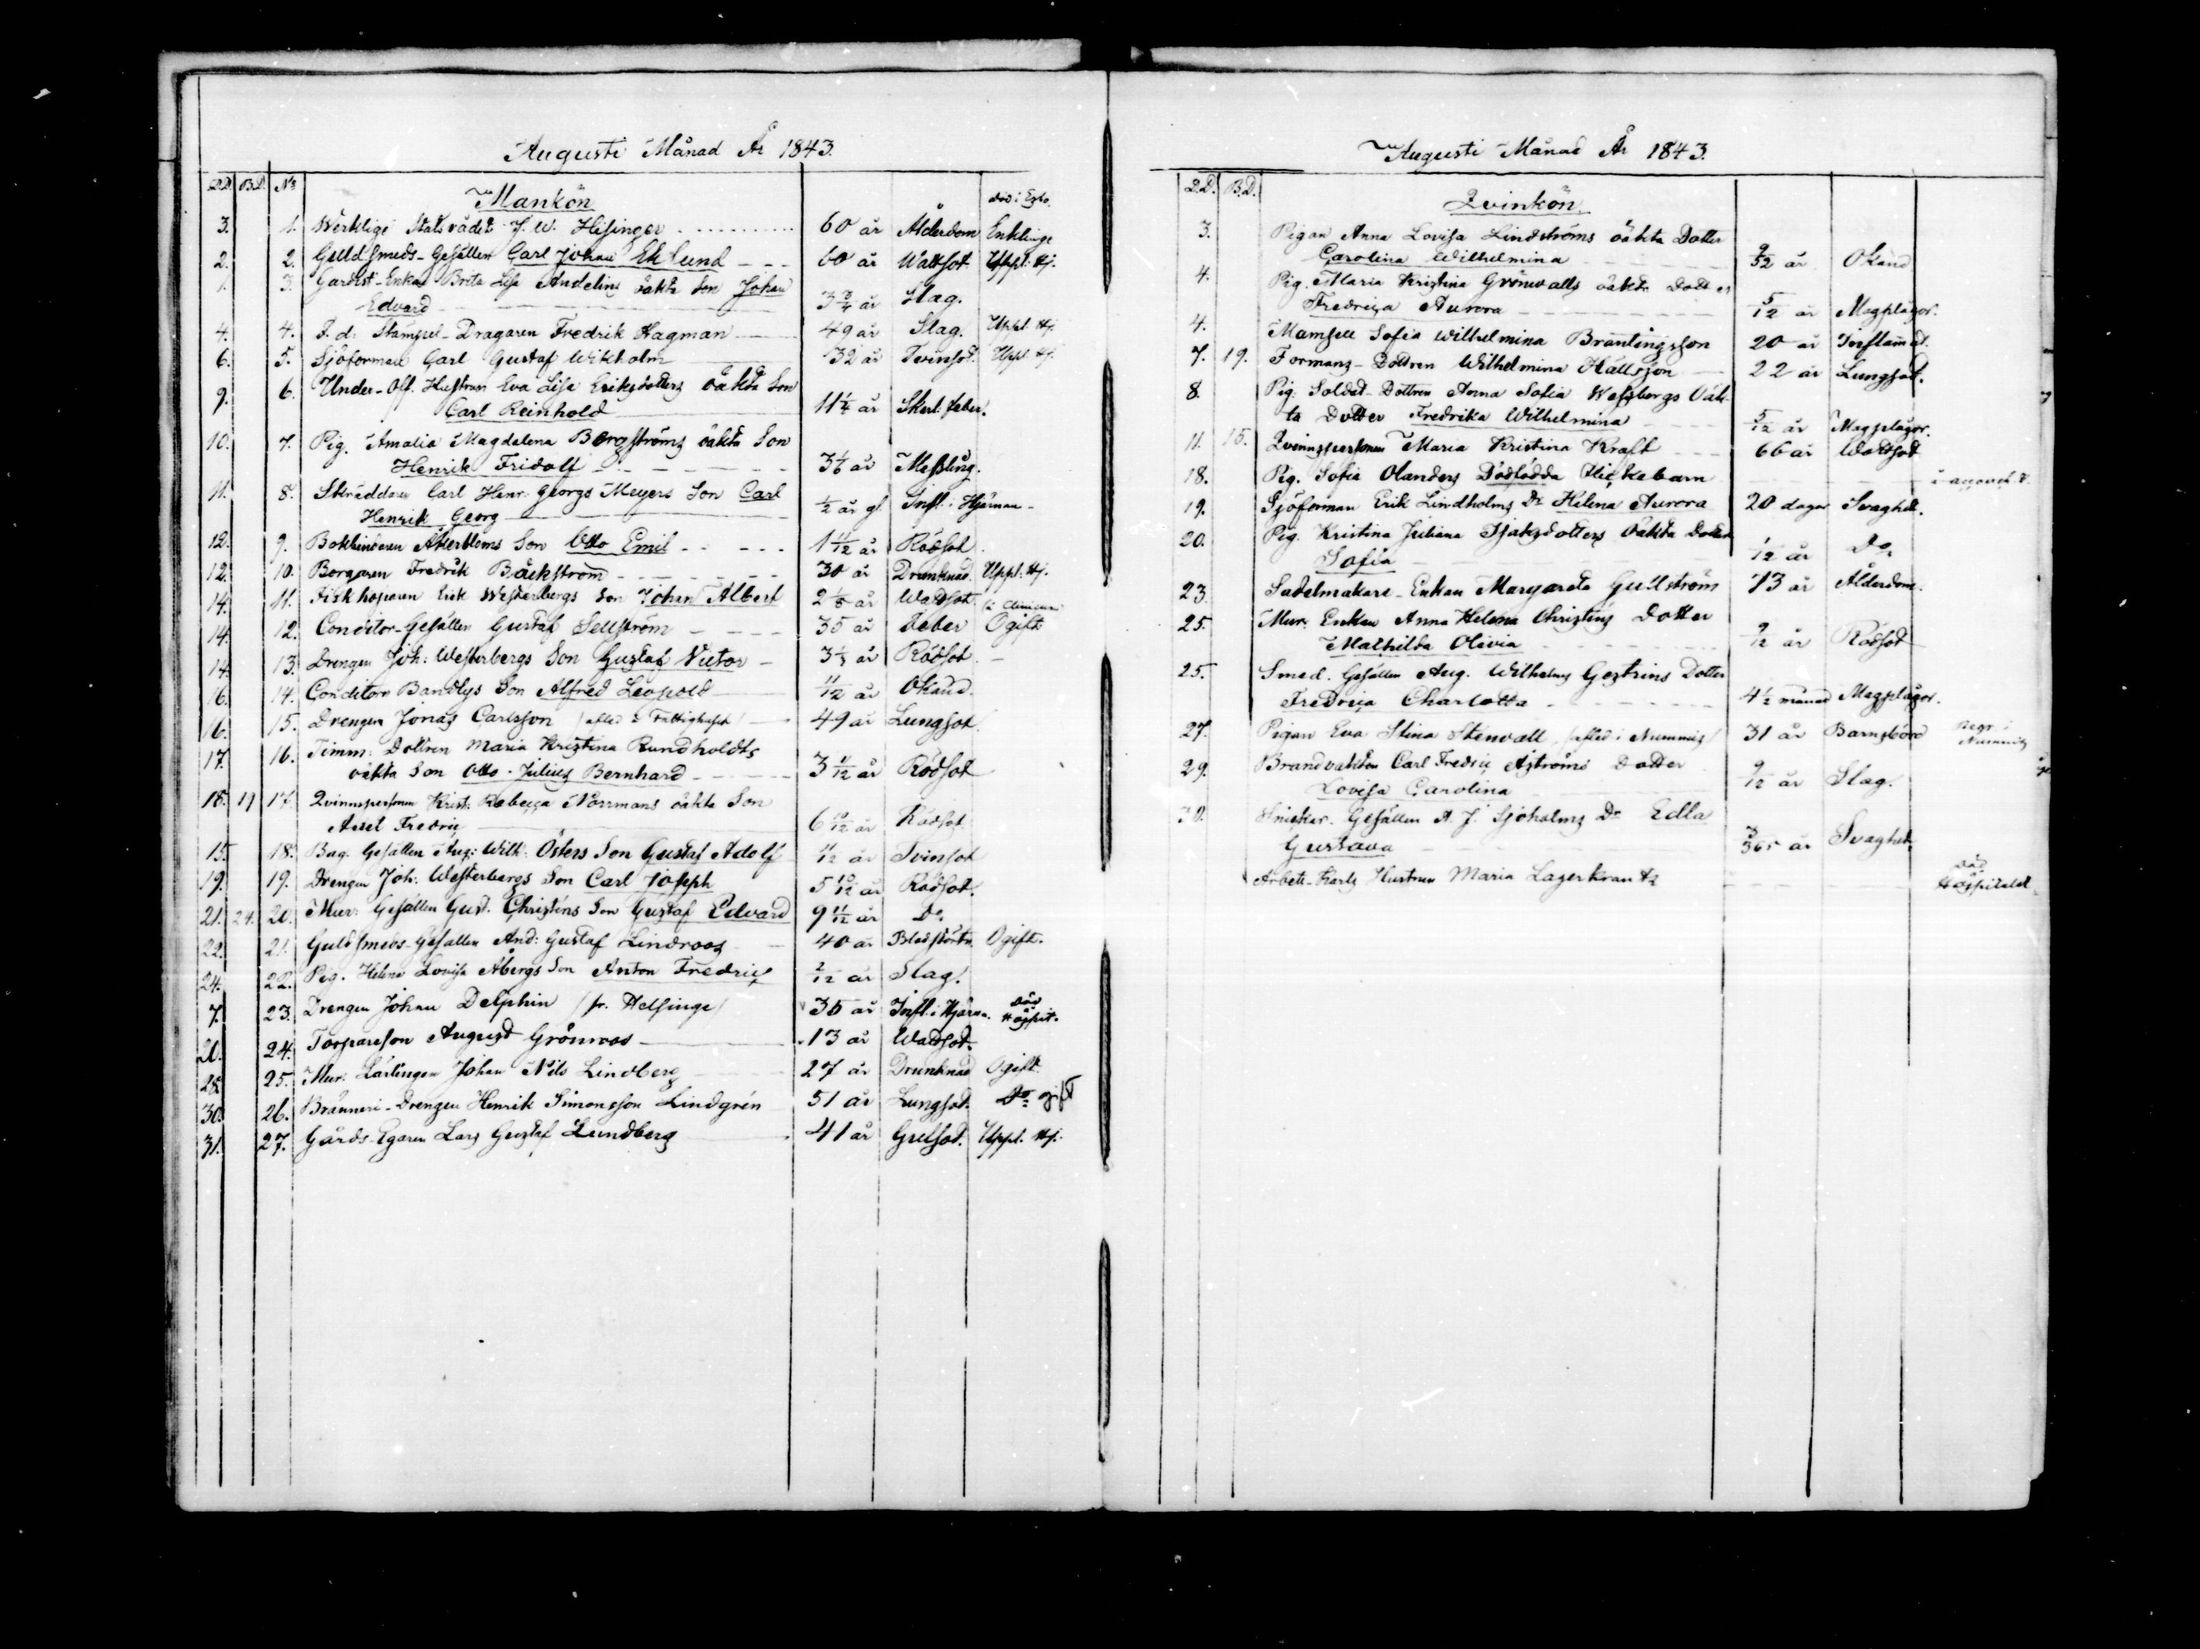 Augusti Månad År 1843.
D.D. B.D. No
Mankön
död i Esbo
3. 1. Werklige Statsrådet J. W. Hisinger 60 år Ålderdom Enkling
2. 2. Guldsmeds-Gesällen Carl Johan Eklund 60 år Wattsot Uppl. Hj.
1. 3. Gardist-Enkan Brita Lisa Andelins oäkta Son Johan
Edvard 3 3/4 år Slag.
4. 4. F. d. Stämpel-Dragaren Fredrik Hagman 49 år Slag. Uppl. Hj.
6. 5. Sjöforman Carl Gustaf Wikholm 32 år Tvinsot. Uppl. Hj.
9. 6. Under-Off. Hustrun Eva Lisa Eriksdotters oäkta Son
Carl Reinhold 11 1/4 år Skarl. feber.
10. 7. Pig. Amalia Magdalena Bergströms oäkta Son
Henrik Fridolf 3 1/6 år Messling.
11. 8. Skräddare Carl Henr. Georgs Meyers Son Carl
Henrik Georg 1/2 år gl. Infl. i Hjärnan
12. 9. Bokbinderen Åkerbloms Son Otto Emil 1 11/12 år Rödsot
12. 10. Borgaren Fredrik Bäckström 30 år Drunknad Uppl. Hj.
14. 11. Fiskköparen Erik Westerbergs Son Johan Albert 2 1/8 år Wattsot
i Clinicum
14. 12. Conditor-Gesällen Gustaf Sellström 35 år Feber Ogift
14. 13. Drengen Joh: Westerbergs Son Gustaf Victor 3 1/3 år Rödsot
16. 14. Conditor Bandlys Son Alfred Leopold 11/12 år Okänd.
16. 15. Drengen Jonas Carlsson (afled i Fattighuset) 49 år Lungsot
17. 16. Timm: Dottren Maria Kristina Rundholdts
oäkta Son Otto Julius Bernhard 3 11/12 år Rödsot
18. 19 17. Qvinnspersonen Krist: Rebecca Norrmans oäkta Son
Axel Fredric 6 10/12 år Rödsot
15. 18. Bag. Gesällen Aug: Wilh: Östers Son Gustaf Adolf 11/12 år Tvinsot
19. 19. Drengen Joh: Westerbergs Son Carl Joseph 5 10/12 år Rödsot.
21. 24. 20. Mur: Gesällen Gust. Christins Son Gustaf Edvard 9 11/12 år Do
22. 21. Guldsmeds-Gesällen And: Gustaf Lindroos 40 år Blodstörtn. Ogift.
24. 22. Pig. Helena Lovisa Åbergs Son Anton Fredric 2/12 år Slag.
7. 23. Drengen Johan Delphin (fr. Helsinge) 36 år Infl. i Hjärnan. Död Hospit.
20. 24. Torpareson August Grönroos 13 år Wattsot.
28. 25. Mur. Lärlingen Johan Nils Lindberg 27 år Drunknad Ogift
30. 26. Bränneri-Drengen Henrik Simonsson Lindgrén 51 år Lungsot. Do gift
31. 27. Gårds-Egaren Lars Gustaf Lundberg 41 år Gulsot. Uppl. Hj.
Augusti Månad År 1843.
D.D. B.D.
Qvinkön.
3. Pigan Anna Lovisa Lindströms oäkta Dotter
Carolina Wilhelmina 2/52 år Okänd
4. Pig. Maria Kristina Grönvalls oäkta Dotter
Fredrica Aurora 5/12 år Magplågor.
4. Mamsell Sofia Wilhelmina Bränlingsson 20 år Inflammat.
7. 19. Formans-Dottren Wilhelmina Hällsson 22 år Lungsot.
8. Pig. Soldat-Dottren Anna Sofia Wefsbergs Oäk-
ta Dotter Fredrika Wilhelmina 5/12 år Magplågor.
11. 15. Qvinnspersonen Maria Kristina Kraft 66 år Wattsot
18. Pig. Sofia Olanders Dödfödda Flickebarn
19. Sjöforman Erik Lindholms Dr Helena Aurora 20 dagar Svaghet.
20. Pig. Kristina Juliana Isaksdotters Oäkta Dotter
Sofia 1/12 år Do
23. Sadelmakare-Enkan Margareta Gullström 73 år Ålderdom.
25. Mur. Enkan Anna Helena Christins Dotter
Mathilda Olivia 9/12 år Rödsot
25. Smed. Gesällen Aug. Wilhelms Gestrins Dotter
Fredrica Charlotta 4 1/2 månad Magplågor.
27. Pigan Eva Stina Stenvall (afled i Nummis) 31 år Barnsbörd Begr. i
Nummis
29. Brandvakten Carl Fredric Åströms Dotter
Lovisa Carolina 9/12 år Slag.
30. Snickar. Gesällen A. J. Sjöholms Dr Edla
Gustava 3/365 år Svaghet.
Arbets-Karls Hustrun Maria Lagerkrantz Död
Hospitalet.